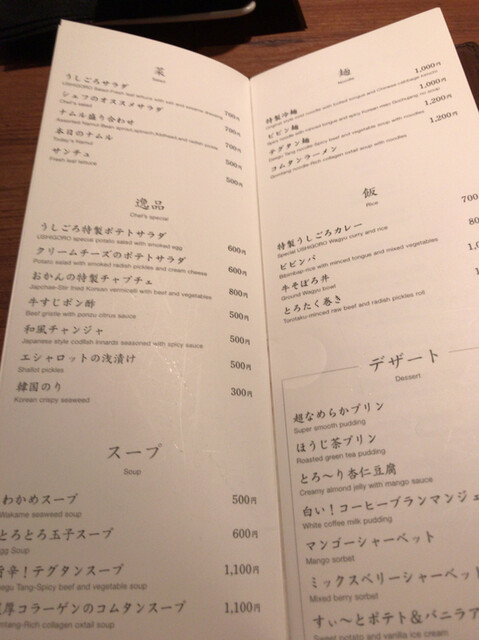 菜
Salad
うしごろサラダ
700円
シェフのオススメサラダ
Chef's salad
700円
ナムル盛り合わせ
700円
本日のナムル
Today's Namul
500円
サンチュ
Fresh leaf lettuce
500円
逸品
Chef's special
うしごろ特製ポテトサラダ
USHIGORO special potato salad with smoked egg
600円
クリームチーズのポテトサラダ
Potato salad with smoked radish pickles and cream cheese
600円
おかんの特製チャプチェ
Japchae-Stir fried Korean vermicelli with beef and vegetables
800円
牛すじポン酢
Beef gristle with ponzu citrus sauce
500円
和風チャンジャ
Japanese style codfish innards seasoned with spicy sauce
500円
エシャロットの浅漬け
Shallot pickles
500円
韓国のり
Korean crispy seaweed
300円
スープ
Soup
わかめスープ
Wakame seaweed soup
500円
とろとろ玉子スープ
Egg Soup
600円
旨辛！テグタンスープ
egu Tang-Spicy beef and vegetable soup
1,100円
濃厚コラーゲンのコムタンスープ
mtang-Rich collagen oxtail soup
1,100円
麺
Noodle
特製冷麺
1,000円
ビビン麺
1,000円
テグタン麺
Daegu Tang noodle-Spicy beef and vegetable soup with noodles
1,200円
コムタンラーメン
Gomtang noodle-Rich collagen oxtail soup with noodles
1,200円
飯
Rice
特製うしごろカレー
Special USHIGORO Wagyu curry and rice
700
ビビンバ
Bibimbap-rice with minced tongue and mixed vegetables
80
牛そぼろ丼
Ground Wagyu bowl
1,000
とろたく巻き
Torotaku-minced raw beef and radish pickles roll
1,00
デザート
Dessert
超なめらかプリン
Super smooth pudding
ほうじ茶プリン
Roasted green tea pudding
とろ〜り杏仁豆腐
Creamy almond jelly with mango sauce
白い！コーヒーブランマンジェ
White coffee milk pudding
マンゴーシャーベット
Mango sorbet
ミックスベリーシャーベット
Mixed berry sorbet
すぃ〜とポテト&バニラア
Sweet potato and vanilla ice cream